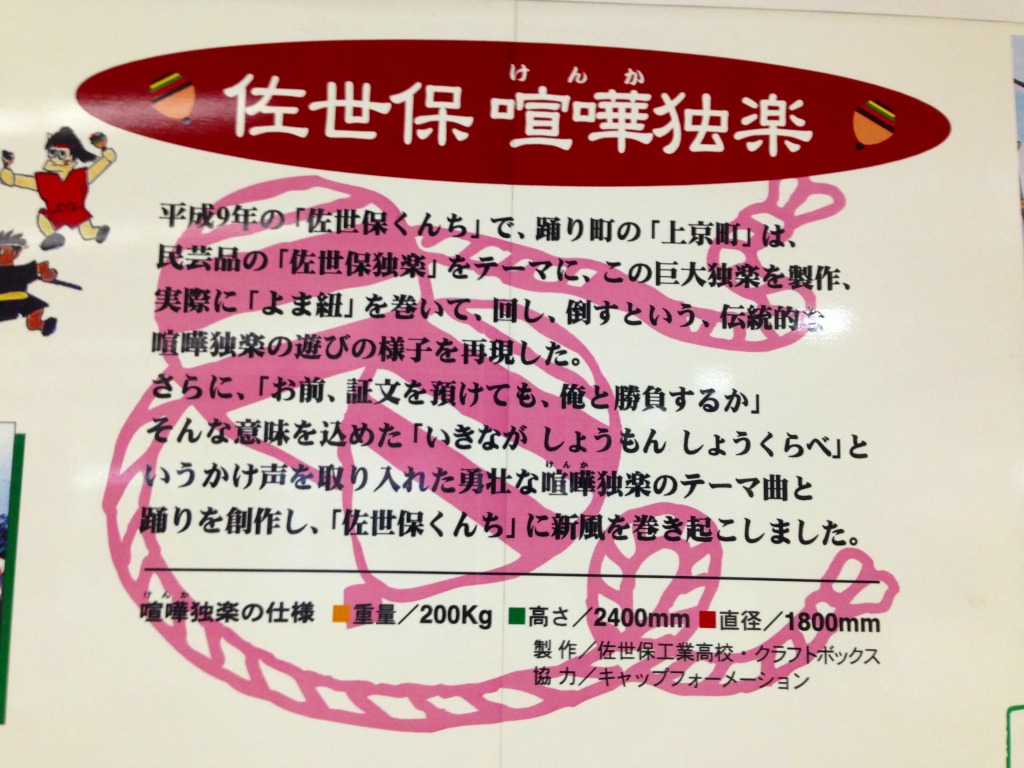 けんか
佐世保 喧嘩独楽
平成9年の「佐世保くんち」で、踊り町の「上京町」は、
民芸品の「佐世保独楽」をテーマに、この巨大独楽を製作、
実際に「よま紐」を巻いて、回し、倒すという、伝統的な
喧嘩独楽の遊びの様子を再現した。
さらに、「お前、証文を預けても、俺と勝負するか」
そんな意味を込めた「いきなが しょうもん しょうくらべ」と
けんか
いうかけ声を取り入れた勇壮な喧嘩独楽のテーマ曲と
踊りを創作し、「佐世保くんち」に新風を巻き起こしました。
けんか
喧嘩独楽の仕様 ■重量／200Kg ■高さ／2400mm ■直径／1800mm
製 作／佐世保工業高校・クラフトボックス
協 力／キャップフォーメーション